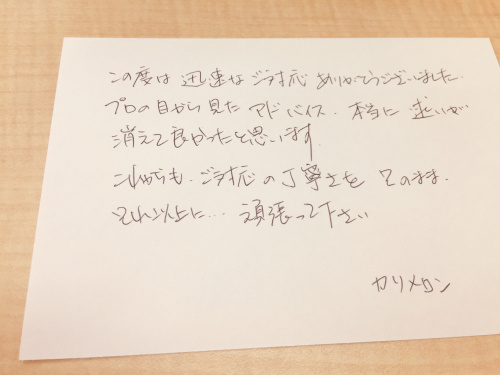 この度は 迅速な ご対応 ありがとうございました.
プロの目から見た アドバイス. 本当に 迷いが
消えて良かったと思います.
これからも. ご対応の丁寧さを そのまま.
それ以上に... 頑張って下さい
カリメロン